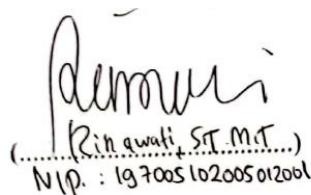 (Rinawati, ST. MT)
NIP. : 197005102005012001